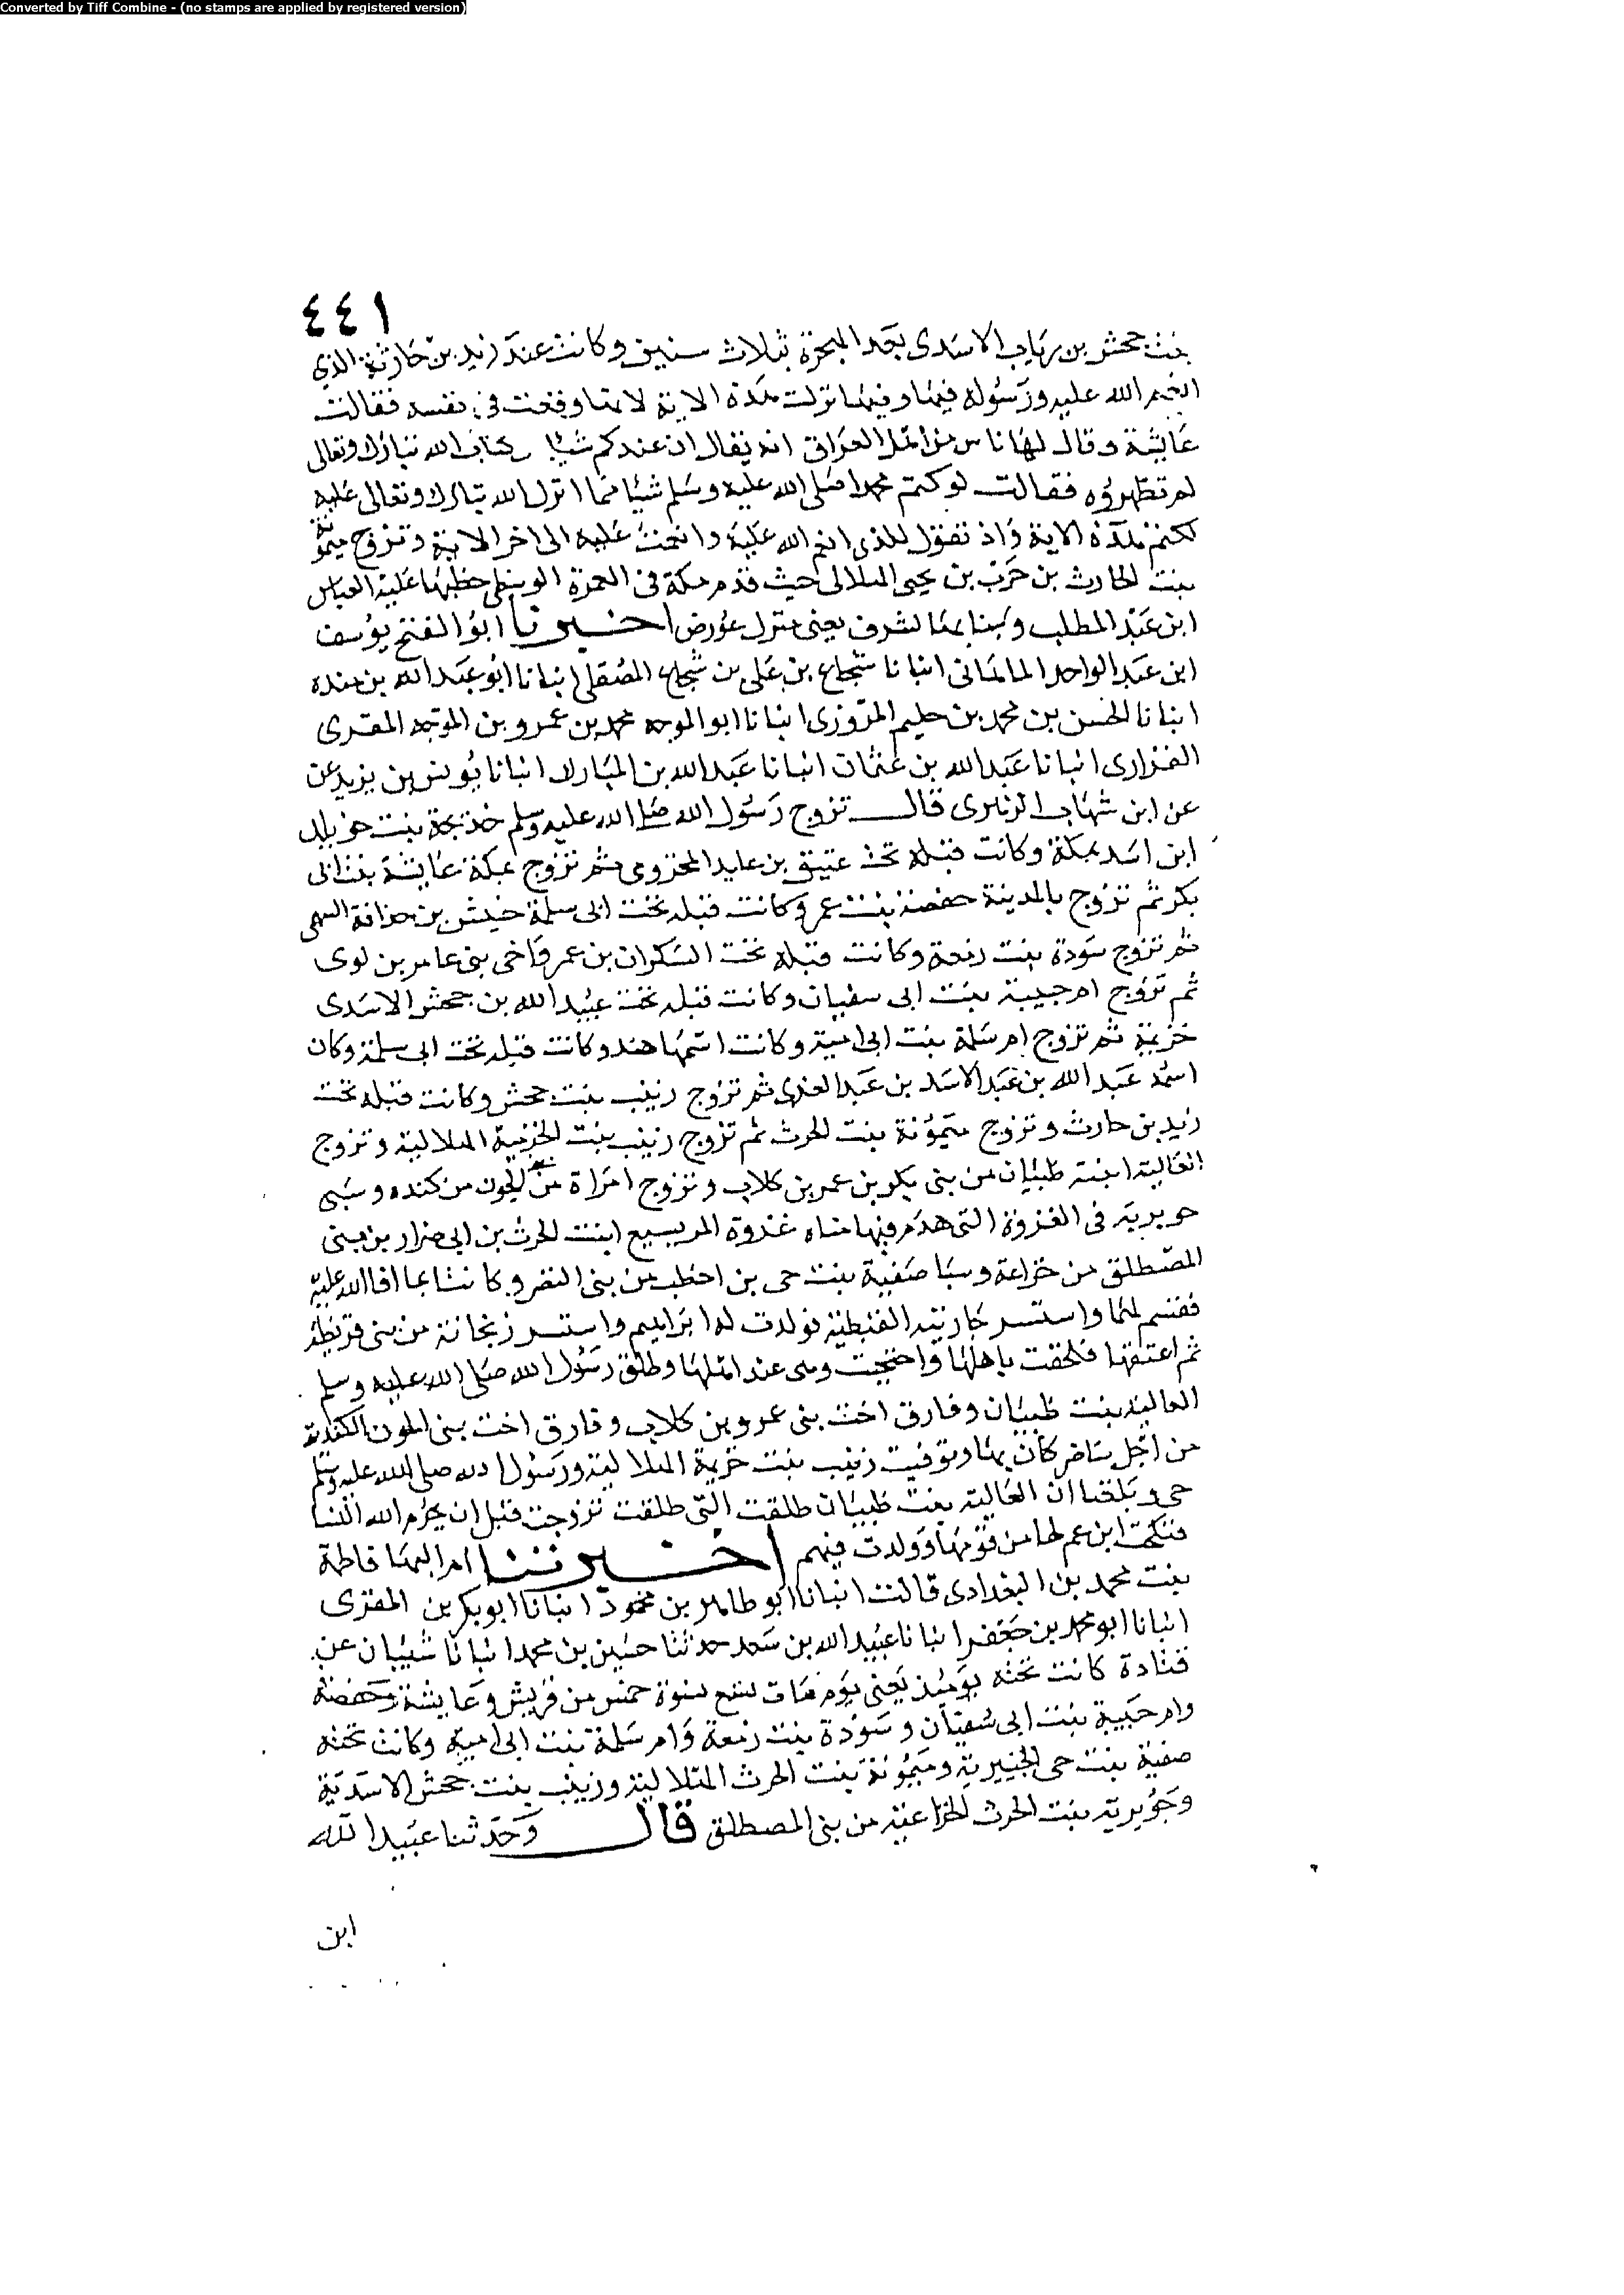 Converted by Tiff Combine - (no stamps are applied by registered version)
٤٤١
بنت جحش بن رياب الاسدى بعد الهجرة بثلاث سنين وكانت عند زيد بن حارثة الذي
انعم الله عليه ورسوله فيها وفيها نزلت هذه الاية لامتا وقعت في نفسه فقالت
عايشة وقال لها ناس من اهل العراق انه يقال ان عندكم شيا كتاب الله تبارك وتعالى
لم تظهروه فقالت لو كتم محمد صلى الله عليه وسلم شيئا مما انزل الله تبارك وتعالى عليه
لكتم هذه الاية واذ تقول للذى انعم الله عليه وانعمت عليه الى اخر الاية وتزوج ميمونة
بنت الحارث بن حرب بن يحيى الهلالى حيث قدم مكة في العمرة الوسطى خطبها عليه العباس
ابن عبد المطلب وبنا بها لشرف يعنى منزل عورض اخبرنا ابو الفتح يوسف
ابن عبد الواحد الماهانى انبانا شجاع بن على بن شجاع المصقلى انبانا ابو عبد الله بن منده
انبانا الحسن بن محمد بن حليم المروزى انبانا ابو الموجه محمد بن عمرو بن الموجه المقرى
الفزارى انبانا عبد الله بن عثمان انبانا عبد الله بن المبارك انبانا يونس بن يزيد عن
عن ابن شهاب الزهرى قال تزوج رسول الله صلى الله عليه وسلم خديجة بنت خويلد
ابن اسد بمكة وكانت قبله تحت عتيق بن عايد المخزومى ثم تزوج بمكة عايشة بنت ابى
بكر ثم تزوج بالمدينة حفصة بنت عمر وكانت قبله تحت ابى سلمة خنيس بن حذافة السهمى
ثم تزوج سودة بنت زمعة وكانت قبله تحت السكران بن عمرو اخى بنى عامر بن لوى
ثم تزوج ام حبيبة بنت ابى سفيان وكانت قبله تحت عبيد الله بن جحش الاسدى
خزيمة ثم تزوج ام سلمة بنت ابى امية وكانت اسمها هند وكانت قبله تحت ابى سلمة وكان
اسمه عبد الله بن عبد الاسد بن عبد العزى ثم تزوج زينب بنت جحش وكانت قبله تحت
زيد بن حارث وتزوج ميمونة بنت الحرث ثم تزوج زينب بنت الخزمية الهلالية وتزوج
العالية ابنة ظبيان من بنى بكر بن عمر بن كلاب وتزوج امراة من الجون من كنده وسبى
جويرية فى الغزوة التى هدم فيها مناه غزوة المريسيع ابنت الحرث بن ابى ضرار من بنى
المصطلق من خزاعة وسبا صفية بنت حى بن اخطب من بنى النضر وكانتا مما افا الله عليه
فقسم لهما واستسر جاريته القبطية فولدت له ابراهيم واستسر ريحانة من بنى قريظة
ثم اعتقها فلحقت باهلها واحتجبت وهى عند اهلها وطلق رسول الله صلى الله عليه وسلم
العالية بنت ظبيان وفارق اخت بنى عمرو بن كلاب وفارق اخت بنى الجون الكندية
من اجل بياض كان بها وتوفيت زينب بنت خزيمة الهلالية ورسول الله صلى الله عليه وسلم
حى وبلغنا ان العالية بنت ظبيان طلقت التى طلقت تزوجت قبل ان يحرم الله النسا
فنكحت ابن عم لها من قومها وولدت فيهم اخبرتنا ام البها فاطمة
بنت محمد بن البغدادى قالت انبانا ابو طاهر بن محمود انبانا ابو بكر بن المقرى
انبانا ابو محمد بن جعفر انبانا عبيد الله بن سعد حدثنا حسين بن محمد انبانا شيبان عن
قتادة كانت تحته يوميذ يعنى يوم مات تسع نسوة خمس من قريش وعايشة وحفصة
وام حبيبة بنت ابى سفيان وسودة بنت زمعة وام سلمة بنت ابى امية وكانت تحته
صفية بنت حى الخيبرية وميمونة بنت الحرث الهلالية وزينب بنت جحش الاسدية
وجويرية بنت الحرث الخزاعية من بنى المصطلق قال وحدثنا عبيد الله
ابن